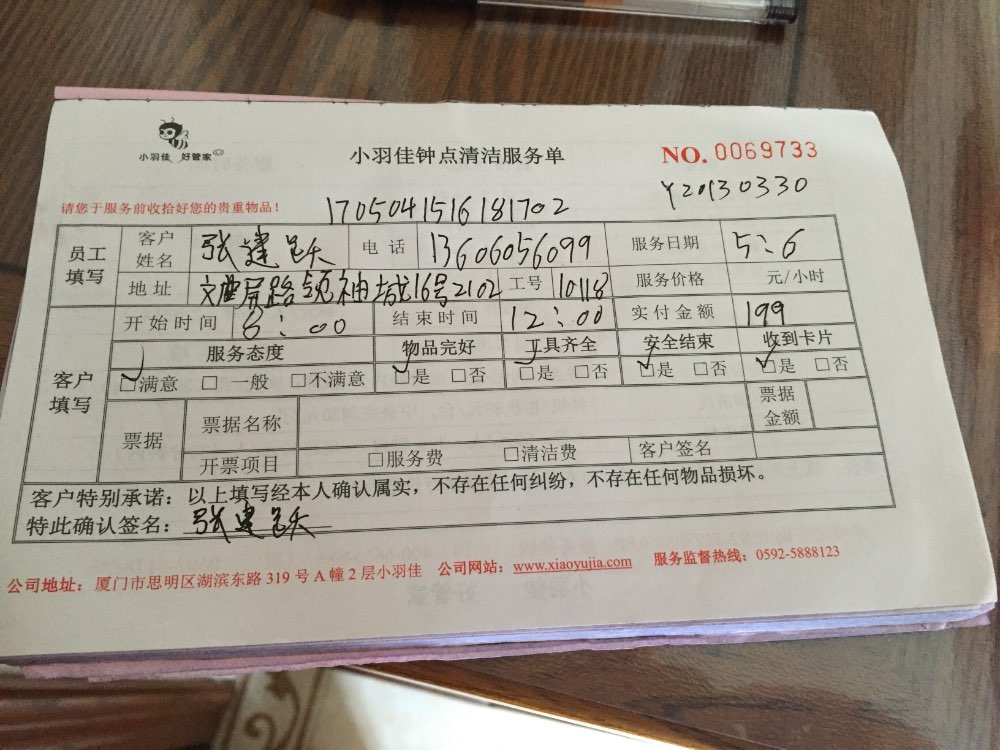 小羽佳 好管家
小羽佳钟点清洁服务单
NO. 0069733
Y20130330
请您于服务前收拾好您的贵重物品！
1705041516181702
员工填写 客户姓名 张建跃 电话 13606056099 服务日期 5:6
地址 文屏路 16号2102 工号 10118 服务价格 元/小时
客户填写 开始时间 8:00 结束时间 12:00 实付金额 199
服务态度 物品完好 工具齐全 安全结束 收到卡片
☑满意 □一般 □不满意 ☑是 □否 ☑是 □否 ☑是 □否 ☑是 □否
票据 票据名称 票据金额
开票项目 □服务费 □清洁费 客户签名
客户特别承诺：以上填写经本人确认属实，不存在任何纠纷，不存在任何物品损坏。
特此确认签名：张建跃
公司地址：厦门市思明区湖滨东路 319 号 A 幢 2 层小羽佳 公司网站：www.xiaoyujia.com 服务监督热线：0592-5888123